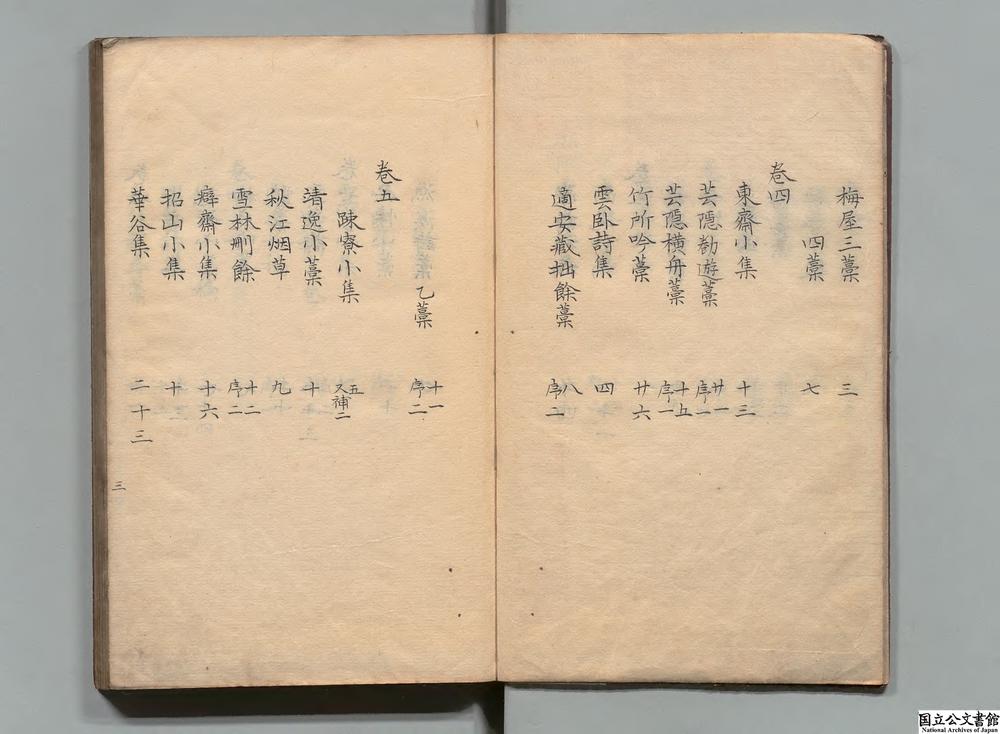 梅屋三藁 三
四藁 七
卷四
東齋小集 十三
芸隠勸遊藁 廿一 序一
芸隠横舟藁 十五 序一
竹所吟藁 廿六
雲卧詩集 四
適安藏拙餘藁 八 序二
乙藁 十一 序二
卷五
疎寮小集 五 又補二
靖逸小藁 十
秋江烟草 九
雪林刪餘 十二 序二
癖齋小集 十六
招山小集 十
華谷集 二十三
三
国立公文書館
National Archives of Japan